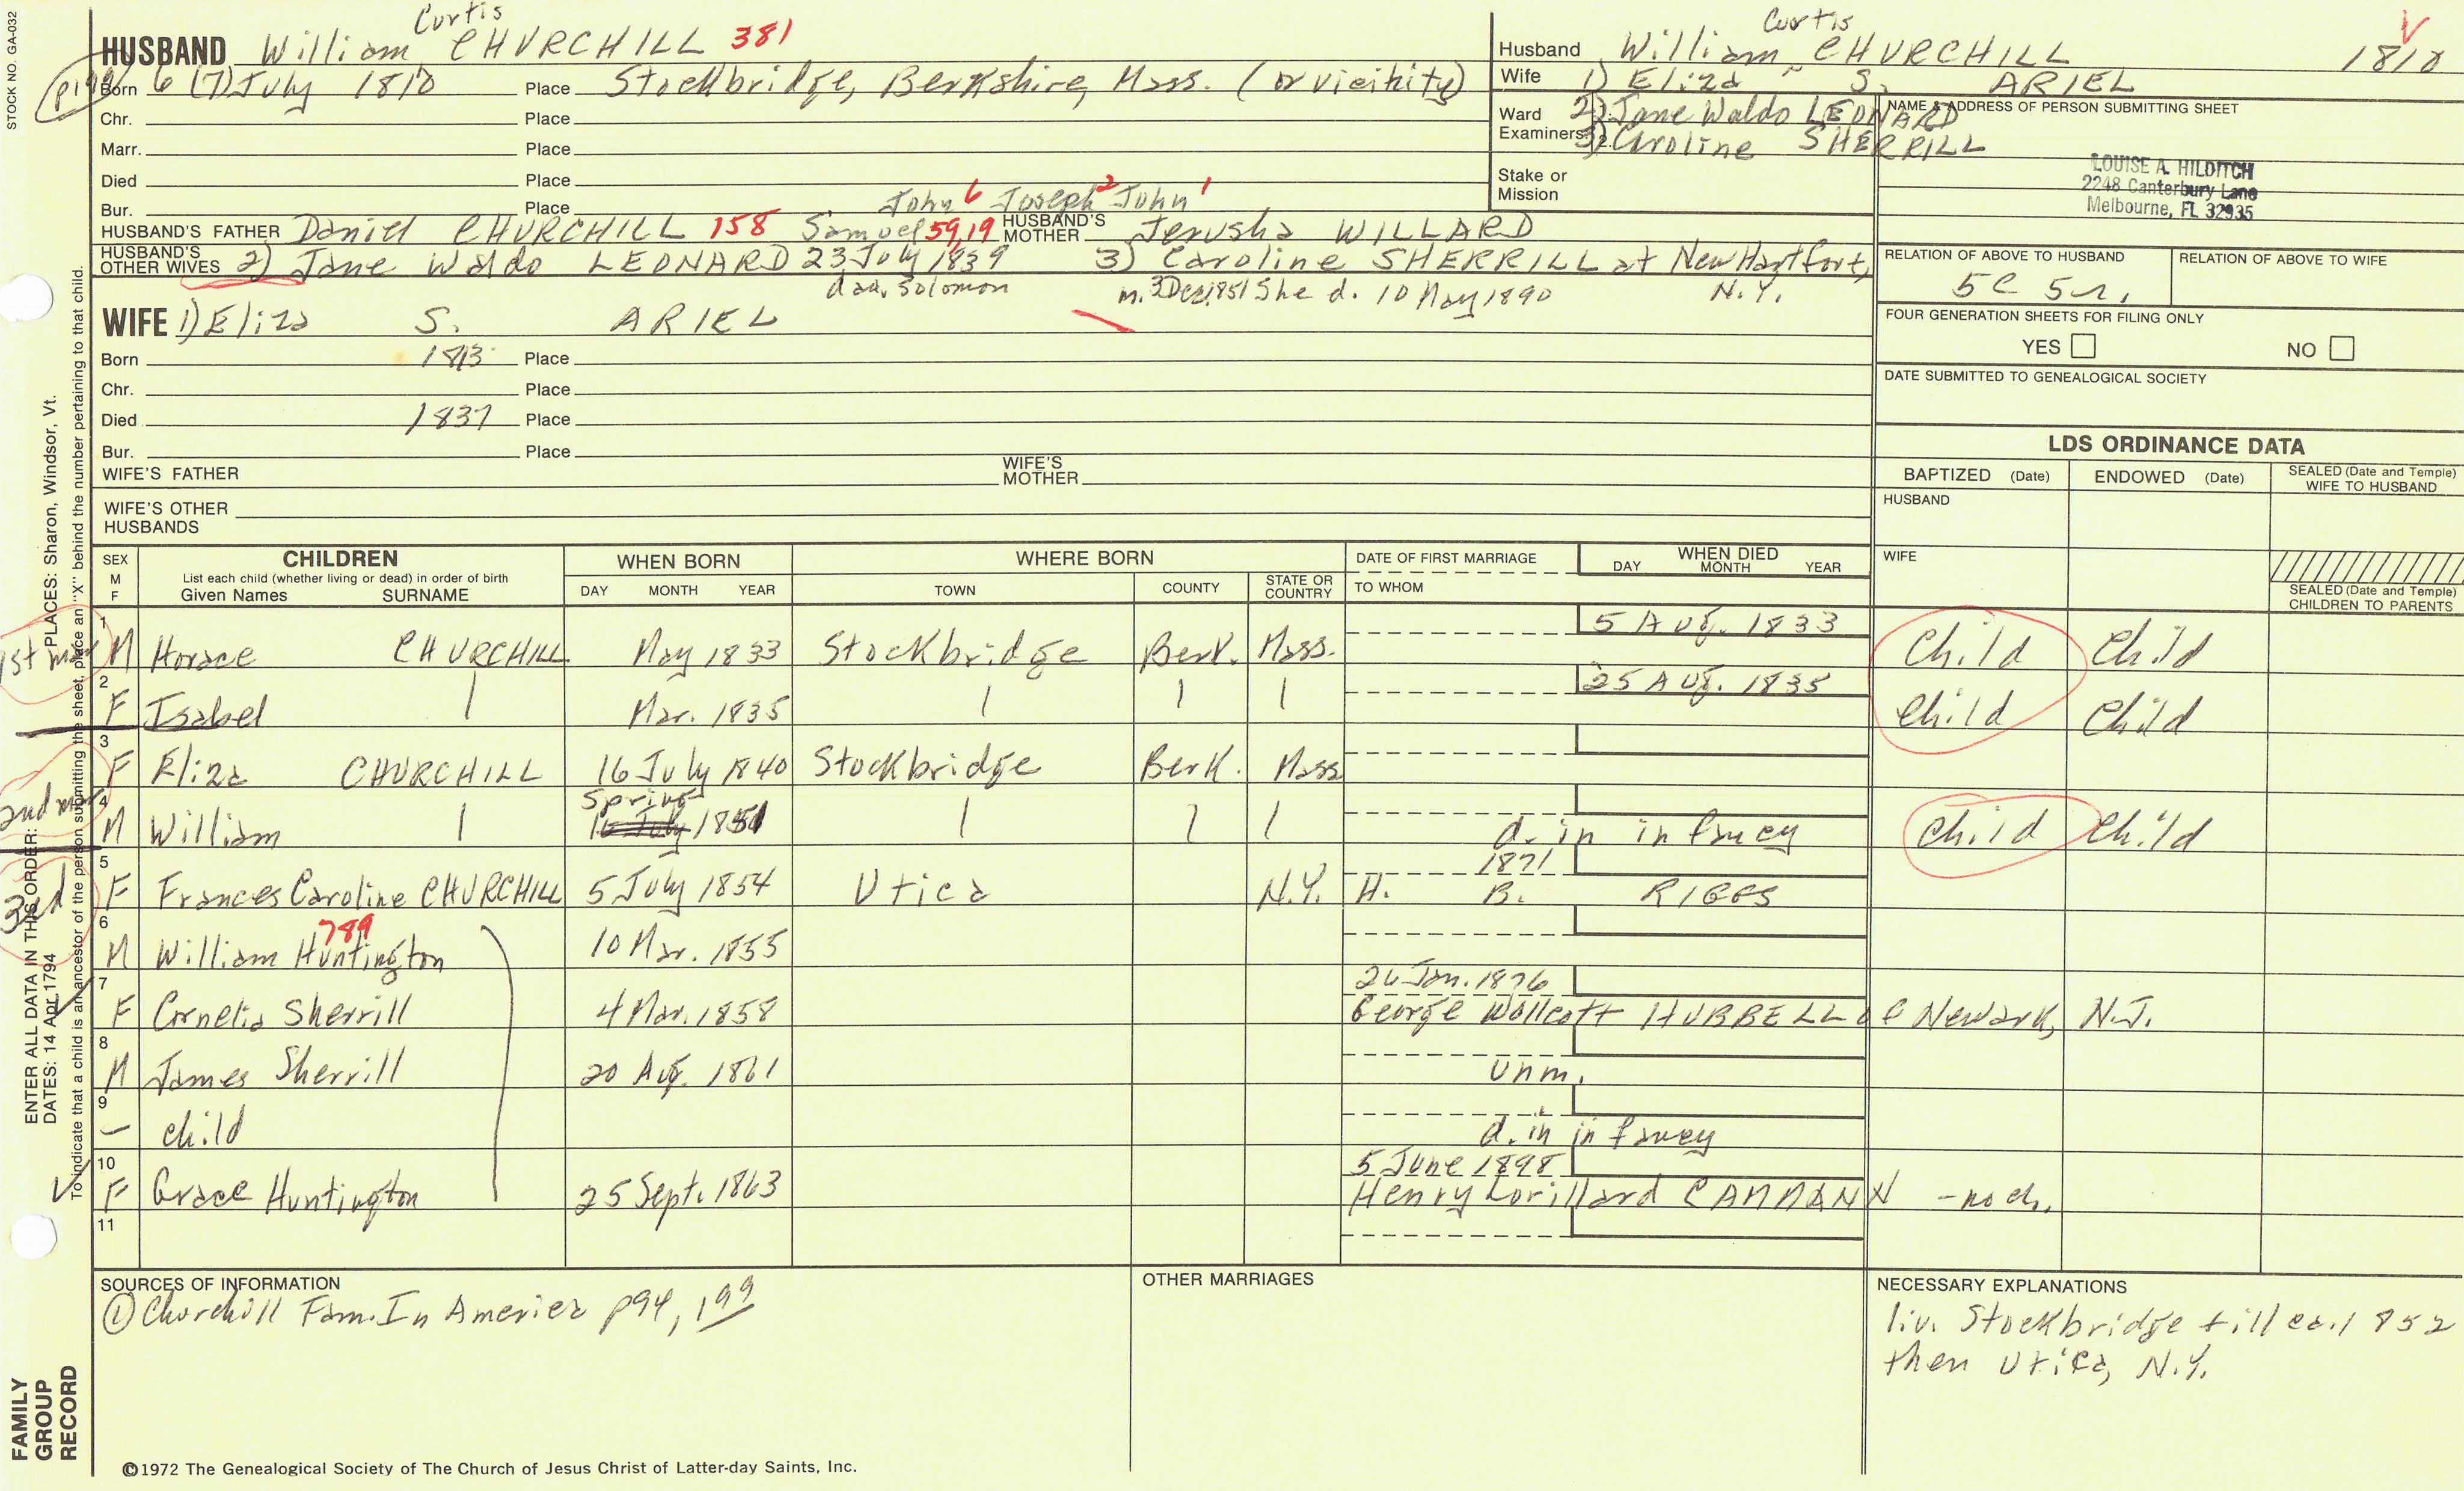 STOCK NO. GA-032
Curtis
HUSBAND William CHURCHILL 381
Born 6 (7) July 1810 Place Stockbridge, Berkshire, Mass. (or vicinity)
Chr. Place
Marr. Place
Died Place
Bur. Place
John 6 Joseph 2 John 1
HUSBAND'S FATHER Daniel CHURCHILL 158 Samuel 59,19 HUSBAND'S MOTHER Jerusha WILLARD
HUSBAND'S OTHER WIVES 2) Jane Waldo LEONARD 23 July 1839 3) Caroline SHERRILL at New Hartfort,
dau. Solomon m. 3 Dec 1851 She d. 10 May 1890 N.Y.
WIFE 1) Eliza S. ARIEL
Born 1813 Place
Chr. Place
Died 1837 Place
Bur. Place
WIFE'S FATHER WIFE'S MOTHER
WIFE'S OTHER HUSBANDS
Curtis
Husband William CHURCHILL 1810
Wife 1) Eliza S. ARIEL
Ward 2) Jane Waldo LEONARD
Examiners: 3) Caroline SHERRILL
Stake or Mission
NAME & ADDRESS OF PERSON SUBMITTING SHEET
LOUISE A. HILDITCH
2248 Canterbury Lane
Melbourne, FL 32935
RELATION OF ABOVE TO HUSBAND RELATION OF ABOVE TO WIFE
5c 5r.
FOUR GENERATION SHEETS FOR FILING ONLY
YES NO
DATE SUBMITTED TO GENEALOGICAL SOCIETY
LDS ORDINANCE DATA
BAPTIZED (Date) ENDOWED (Date) SEALED (Date and Temple) WIFE TO HUSBAND
HUSBAND
WIFE
SEALED (Date and Temple) CHILDREN TO PARENTS
SEX M F
CHILDREN
List each child (whether living or dead) in order of birth
Given Names SURNAME
WHEN BORN
DAY MONTH YEAR
WHERE BORN
TOWN COUNTY STATE OR COUNTRY
DATE OF FIRST MARRIAGE
TO WHOM
WHEN DIED
DAY MONTH YEAR
1 5 Aug. 1833
M Horace CHURCHILL May 1833 Stockbridge Berk. Mass. Child Child
2 25 Aug. 1835
F Isabel Mar. 1835 Child Child
3
F Eliza CHURCHILL 16 July 1840 Stockbridge Berk. Mass
4 Spring
M William 16 July 1851 d. in infancy Child Child
5 1871
F Frances Caroline CHURCHILL 5 July 1854 Utica N.Y. H. B. RIGGS
6 789
M William Huntington 10 Mar. 1855
7 26 Jan. 1876
F Cornelia Sherrill 4 Mar. 1858 George Wollcott HUBBELL of Newark, N.J.
8
M James Sherrill 20 Aug. 1861 Unm.
9
- child d. in infancy
10 5 June 1898
F Grace Huntington 25 Sept. 1863 Henry Lorillard CAMMANN - no ch.
11
1st mar
2nd mar
3rd
SOURCES OF INFORMATION
① Churchill Fam. In America p94, 199
OTHER MARRIAGES
NECESSARY EXPLANATIONS
liv. Stockbridge till ca. 1852
then Utica, N.Y.
ENTER ALL DATA IN THIS ORDER:
DATES: 14 Apr 1794
PLACES: Sharon, Windsor, Vt.
To indicate that a child is an ancestor of the person submitting the sheet, place an "X" behind the number pertaining to that child.
FAMILY
GROUP
RECORD
©1972 The Genealogical Society of The Church of Jesus Christ of Latter-day Saints, Inc.